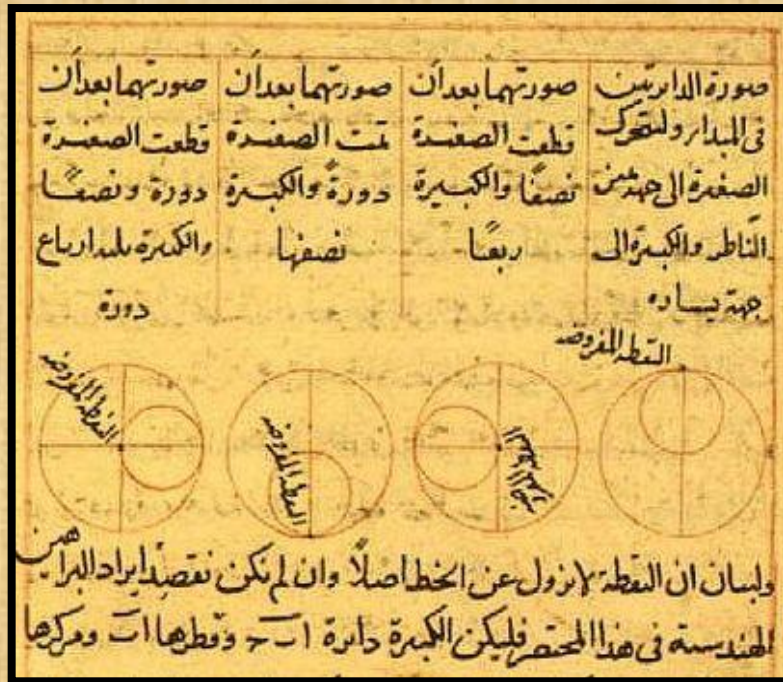 صورة الدايرتين
فى المبدا ولتتحرك
الصغيرة الى جهة يمين
الناظر والكبيرة الى
جهة يساره
صورتهما بعد أن
قطعت الصغيرة
نصفًا والكبيرة
ربعًا
صورتهما بعد أن
تمت الصغيرة
دورةً والكبيرة
نصفها
صورتهما بعد أن
قطعت الصغيرة
دورة ونصفًا
والكبيرة ثلثة ارباع
دورة
النقطة المفروضة
النقطة المفروضة
النقطة المفروضة
النقطة المفروضة
ولبيان ان النقطة لا تزول عن الخط اصلًا وان لم نكن نقصد ايراد البراهين
الهندسية فى هذا المختصر فليكن الكبيرة دايرة اب وقطرها اب ومركزها